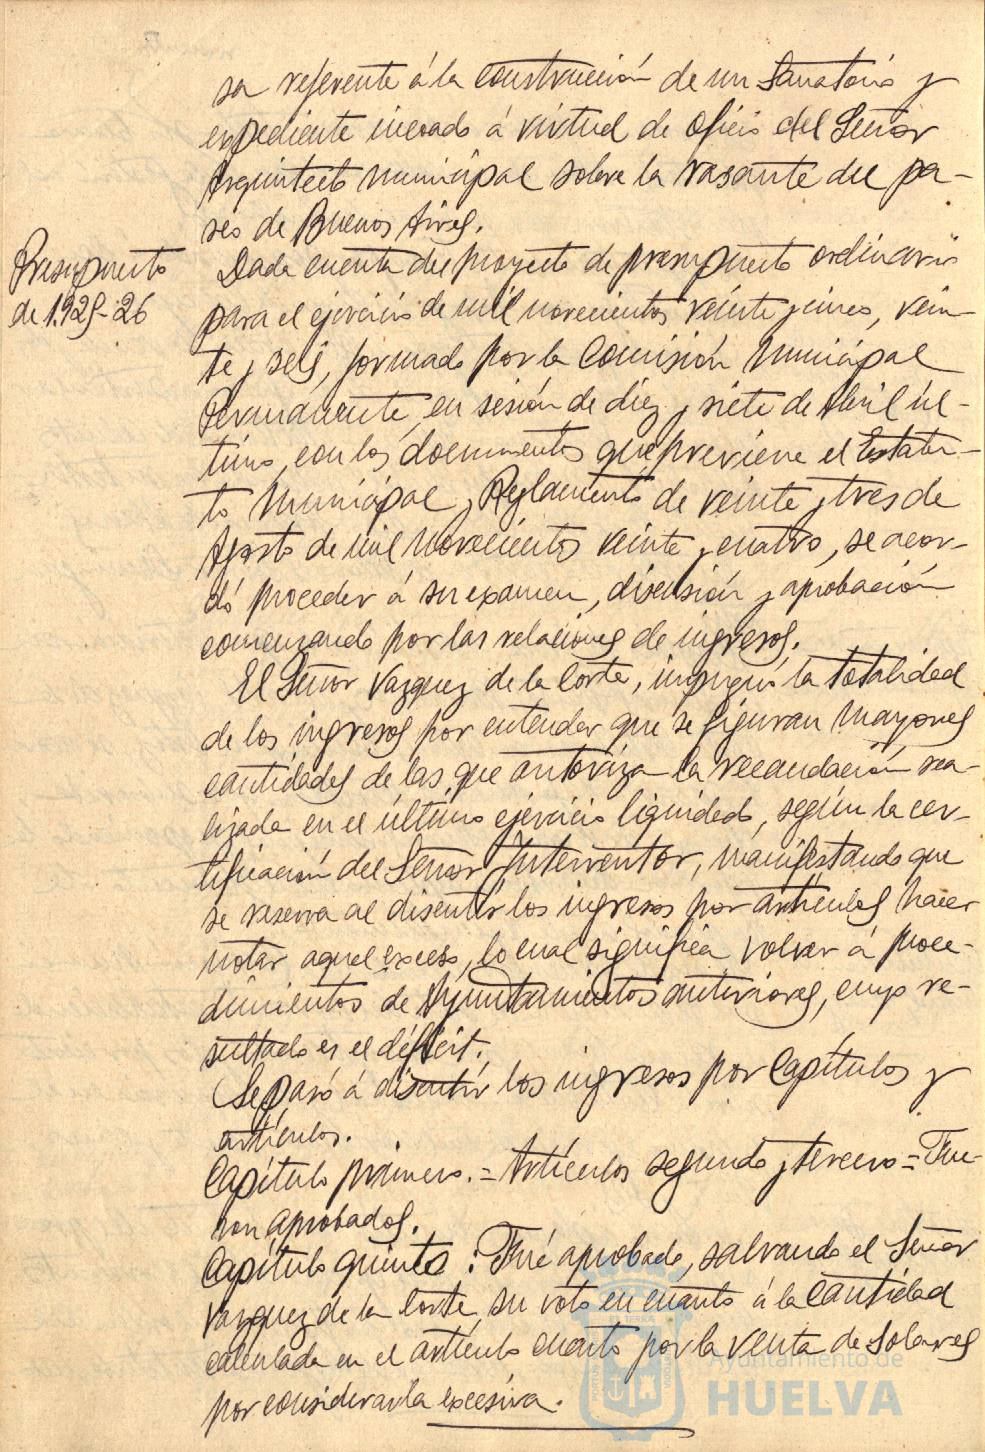 sa referente á la construcción de un Sanatorio y
expediente incoado á virtud de oficio del Señor
Arquitecto Municipal sobre la rasante del pa-
seo de Buenos Aires.
Presupuesto
de 1.925-26
Dada cuenta del proyecto de presupuesto ordinario
para el ejercicio de mil novecientos veinte y cinco, vein-
te y seis, formado por la Comisión Municipal
Permanente, en sesión de diez y siete de Abril úl-
timo, con los documentos que previene el Estatu-
to Municipal y Reglamento de veinte y tres de
Agosto de mil novecientos veinte y cuatro, se acor-
dó proceder á su examen, discusión y aprobación
comenzando por las relaciones de ingresos.
El Señor Vazquez de la Corte, impugnó la totalidad
de los ingresos por entender que se figuran mayores
cantidades de las que autoriza la recaudación rea-
lizada en el último ejercicio liquidado, según la cer-
tificación del Señor Interventor, manifestando que
se reserva al discutir los ingresos por artículos hacer
notar aquel exceso, lo cual significa volver á proce-
dimientos de Ayuntamientos anteriores, cuyo re-
sultado es el déficit.
Se pasó á discutir los ingresos por Capítulos y
artículos.
Capítulo primero.= Artículos segundo y tercero= Fue-
ron aprobados.
Capítulo quinto: Fué aprobado, salvando el Señor
Vazquez de la Corte, su voto en cuanto á la cantidad
calculada en el artículo cuarto por la venta de solares
por considerarla excesiva.
Ayuntamiento de
HUELVA